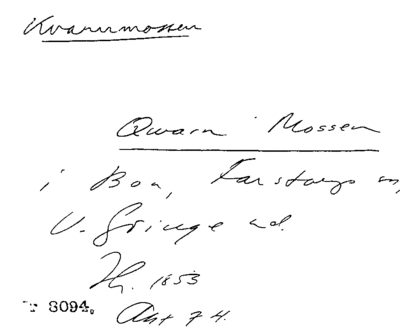 Kvarnmossen
Qwarn Mossen
i Bon, Farstorps sn,
V. Göinge hd.
Th. 1853
3094. Akt 74.